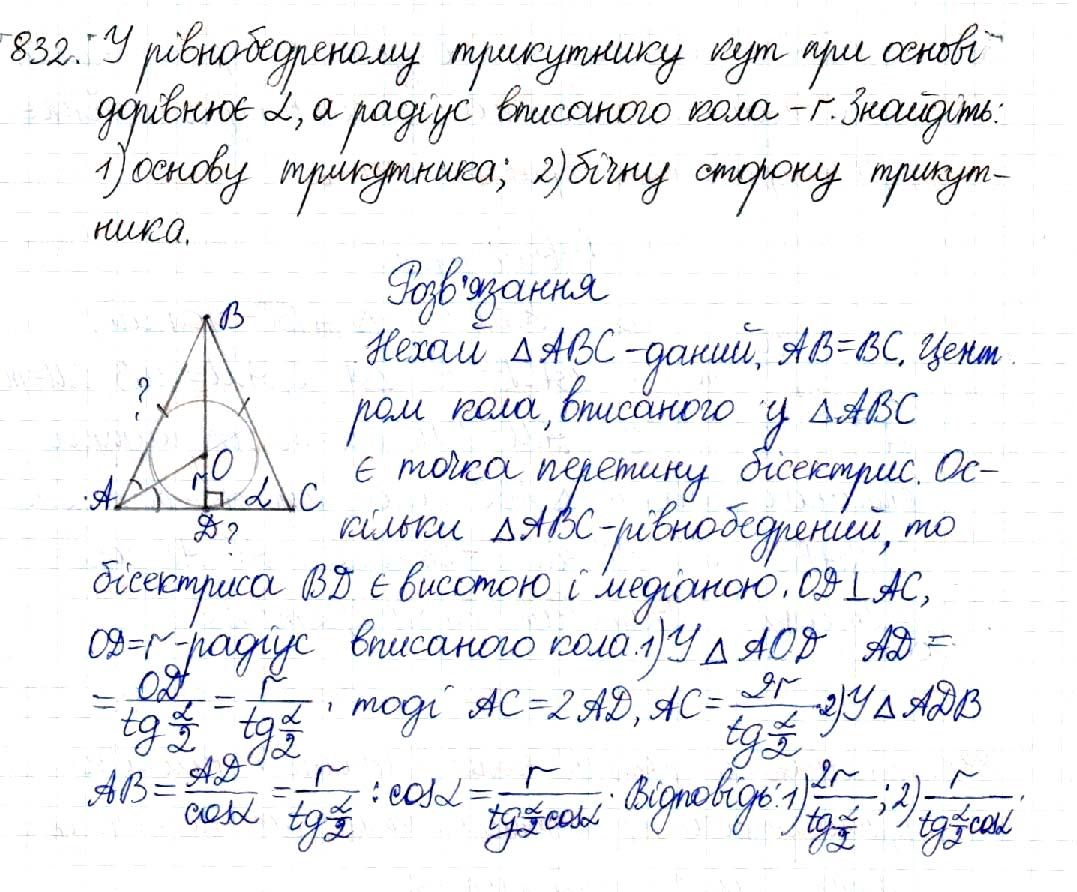 832. У рівнобедреному трикутнику кут при основі
дорівнює α, а радіус вписаного кола – r. Знайдіть:
1) основу трикутника; 2) бічну сторону трикут-
ника.
Розв'язання
B
Нехай △ABC – даний, AB=BC. Цент
?
ром кола, вписаного у △ABC
O
є точка перетину бісектрис. Ос-
A r α C
D ?
кільки △ABC – рівнобедрений, то
бісектриса BD є висотою і медіаною. OD⊥AC,
OD=r – радіус вписаного кола. 1) У △AOD AD =
= OD/tg α/2 = r/tg α/2, тоді AC=2AD, AC= 2r/tg α/2. 2) У △ADB
AB = AD/cosα = r/tg α/2 : cosα = r/tg α/2 cosα. Відповідь: 1) 2r/tg α/2; 2) r/tg α/2 cosα.